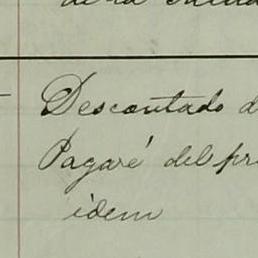 de la
Descontado d
Pagaré del pr
idem